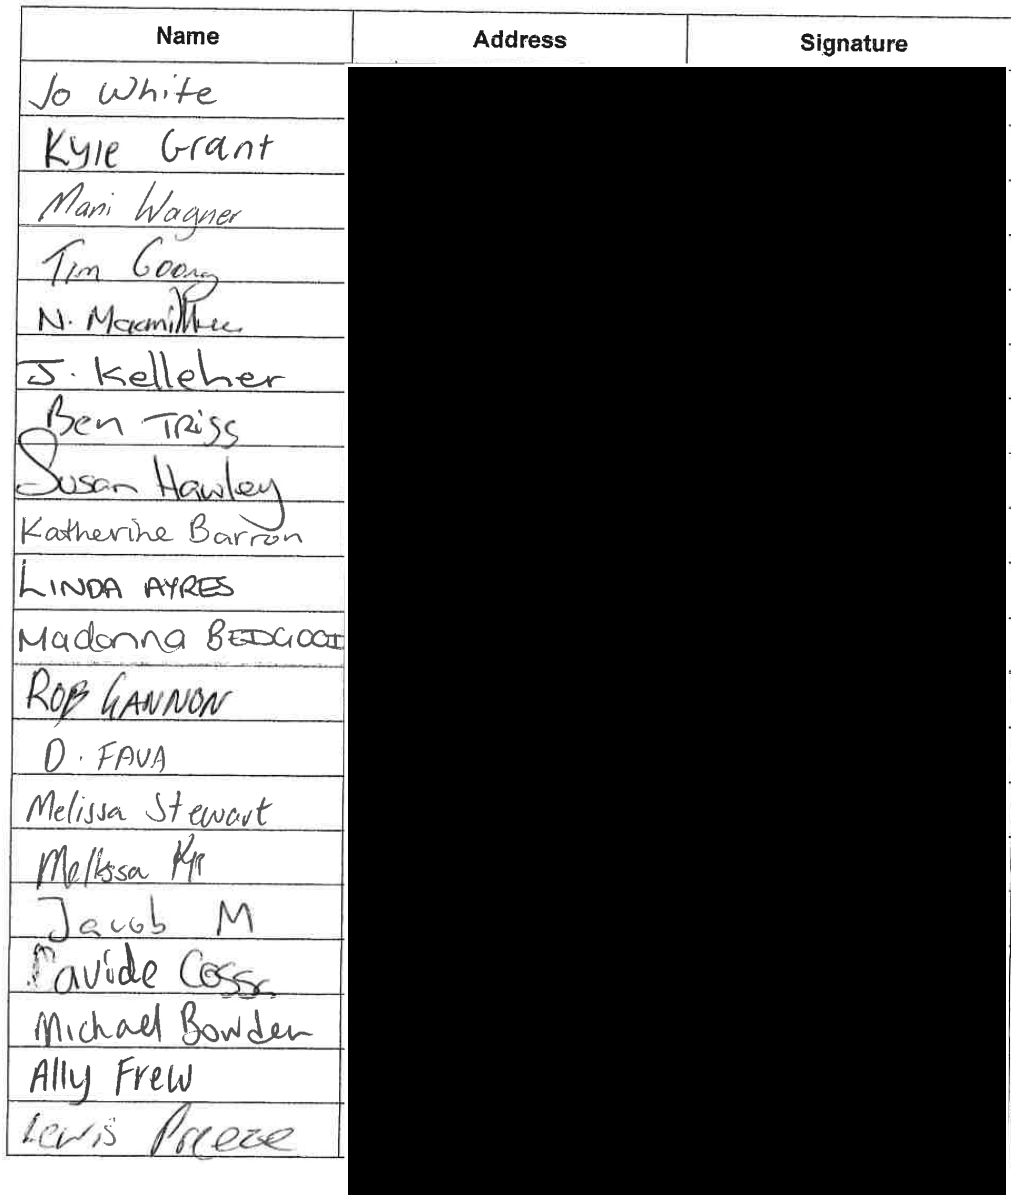 Name Address Signature
Jo White
Kyle Grant
Mani Wagner
Tim
N.
J. Kelleher
Ben TRiss
Susan Hawley
Katherine Barron
LINDA AYRES
Madonna
ROB GANNON
D. FAVA
Melissa Stewart
Melissa
Jacob M
Davide
Michael Bowden
Ally Frew
Lewis Preeze